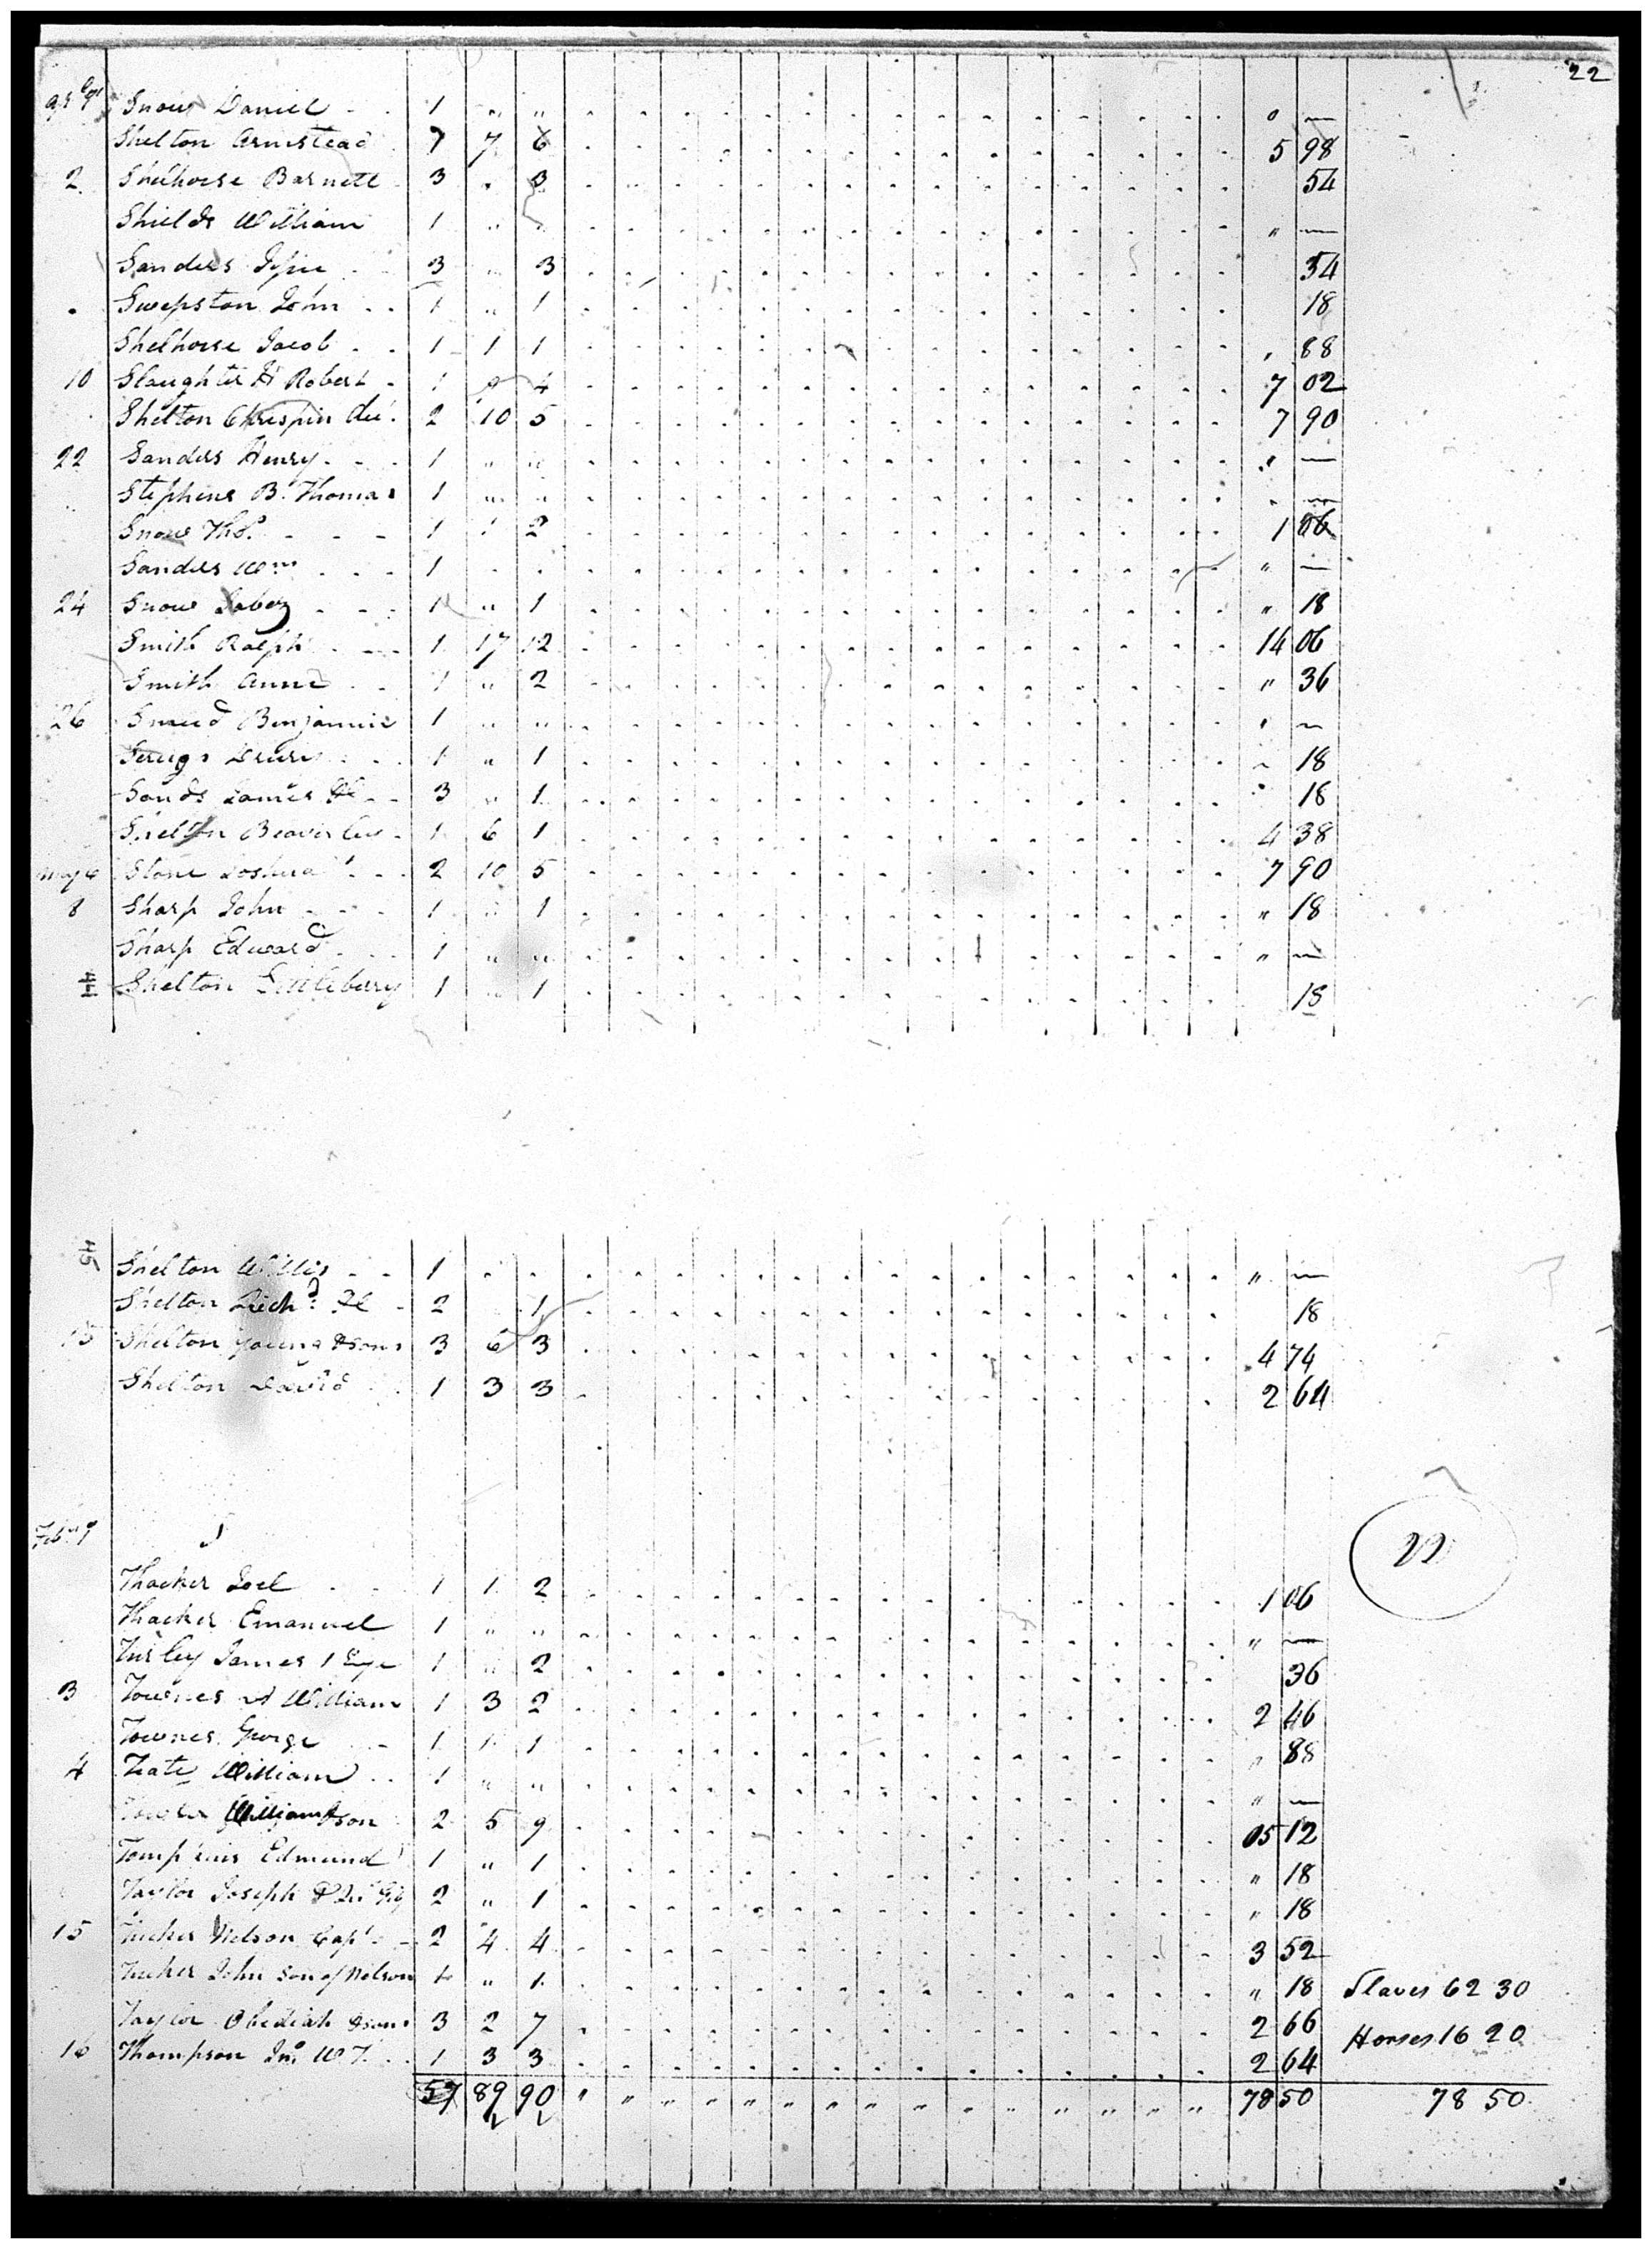 22
Snow Daniel 1 " " 0 —
Shelton Armistead 7 7 6 5 98
2 Shelhorse Barnett 3 . 3 54
Shields William 1 " " " —
Sanders 3 " 3 54
Swepston John 1 " 1 18
Shelhorse Jacob 1 1 1 " 88
10 Slaughter Robert 1 9 4 7 02
Shelton Chrispin 2 10 5 7 90
22 Sanders Henry 1 " " " —
Stephens B. Thomas 1 " " —
Snow Tho.s 1 1 2 1 06
Sanders Wm 1 . . " —
24 Snow Jabez 1 " 1 " 18
Smith Ralph 1 17 12 14 06
Smith Anne 1 " 2 " 36
26 Benjamin 1 " " —
1 " 1 18
Sands James 3 " 1 18
Shelton 1 6 1 4 38
Stone Joshua 2 10 5 7 90
8 Sharp John 1 " 1 " 18
Sharp Edward 1 " " " —
Shelton Littlebury 1 " 1 18
Shelton Willis 1 . . " —
Shelton Richd. 2 1 18
15 Shelton Young & sons 3 6 3 4 74
Shelton David 1 3 3 2 64
22
Thacker Joel 1 1 2 1 06
Thacker Emanuel 1 " " " —
Turley James 1 " 2 36
3 Townes William 1 3 2 2 46
Townes George 1 1 1 " 88
4 Tate William 1 " " " —
William & son 2 5 9 05 12
Tompkins Edmund 1 " 1 " 18
Taylor Joseph 2 " 1 " 18
15 Tucker Nelson Capt. 2 4 4 3 52
Tucker John son of Nelson 1 " 1 " 18 Slaves 62 30
Taylor Obediah & sons 3 2 7 2 66 Horses 16 20
16 Thompson Jno. W T. 1 3 3 2 64
57 89 90 " " " " " " " " " " " " " " 78 50 78 50